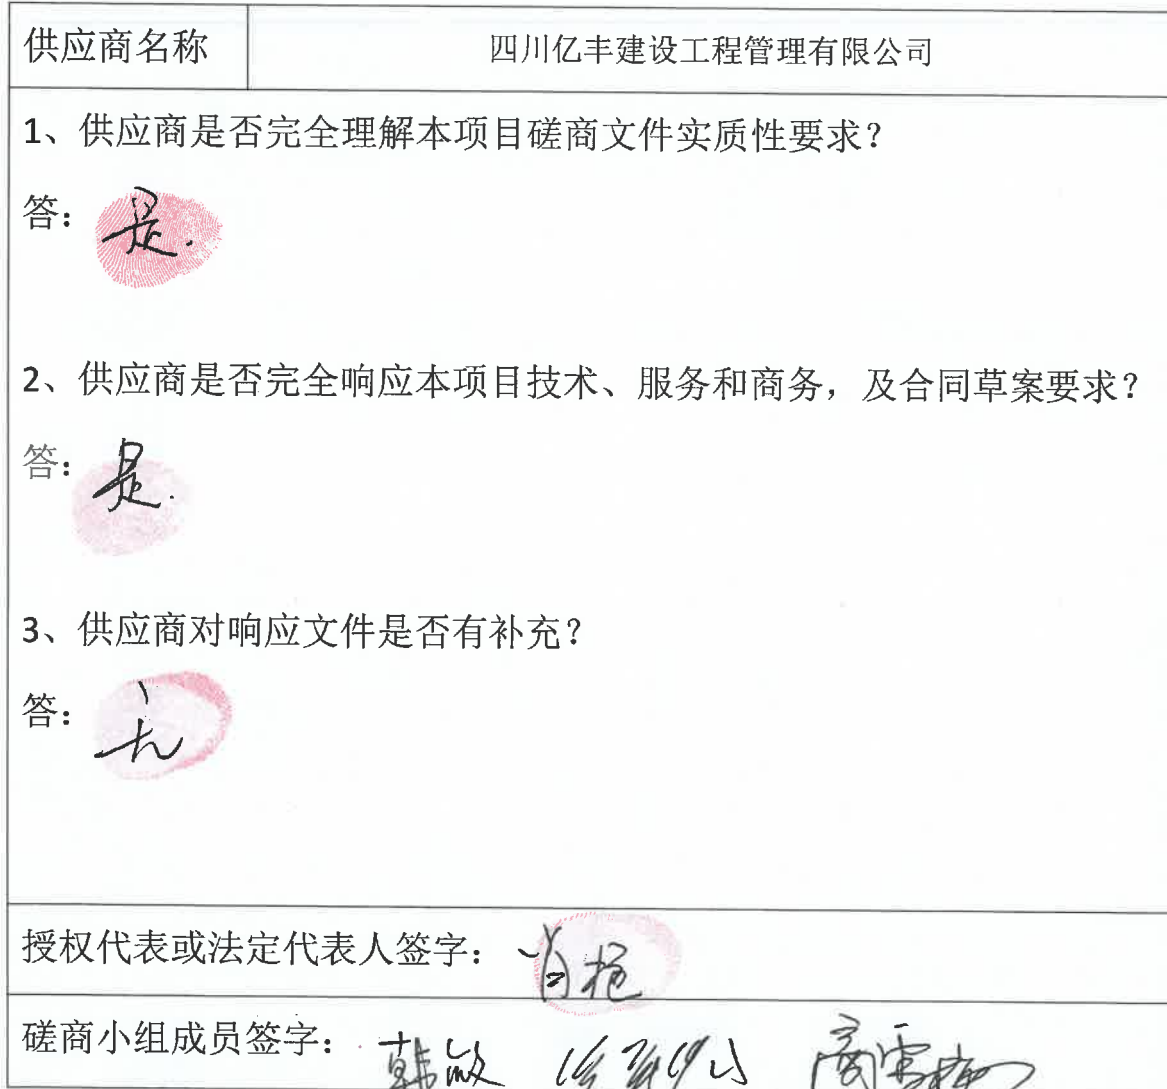 供应商名称 四川亿丰建设工程管理有限公司
1、供应商是否完全理解本项目磋商文件实质性要求？
答：是.
2、供应商是否完全响应本项目技术、服务和商务，及合同草案要求？
答：是.
3、供应商对响应文件是否有补充？
答：无
授权代表或法定代表人签字：
磋商小组成员签字：韩敏